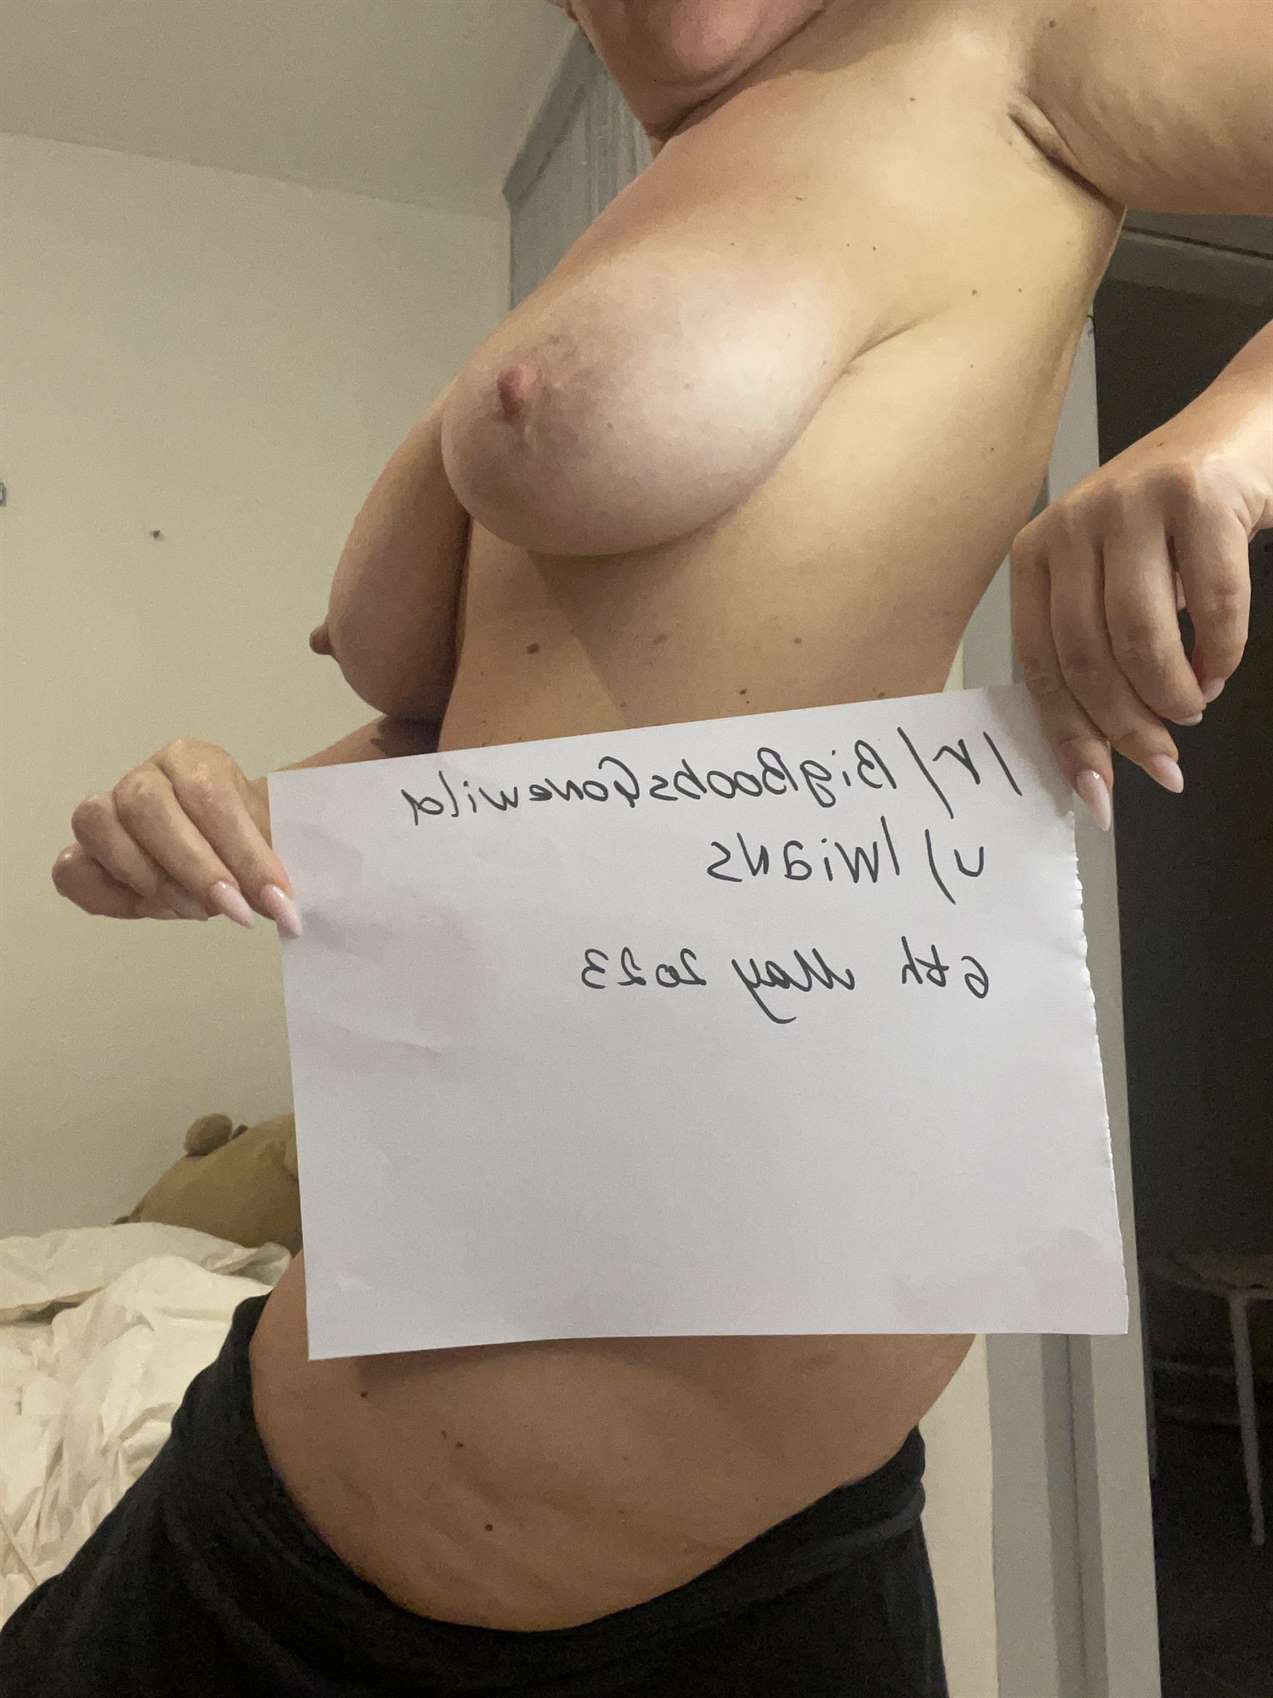 /r/BigBoobsGonewild
u/Imians
6th May 2023